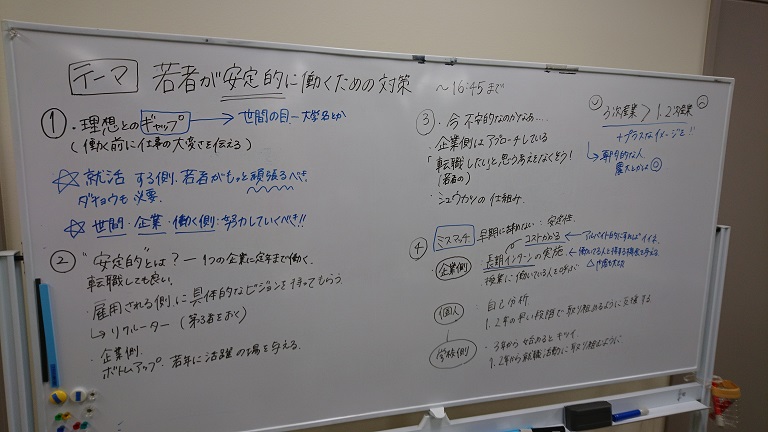 テーマ 若者が安定的に働くための対策 ～16:45まで
① ・理想とのギャップ → 世間の目-大学名とか
(働く前に仕事の大変さを伝える)
☆ 就活する側.若者がもっと頑張るべき.
ダキョウも必要.
☆ 世間・企業・働く側:努力していくべき!!
② "安定的"とは?ー1つの企業に定年まで働く.
転職しても良い.
・雇用される側に具体的なビジョンを持ってもらう.
↳ リクルーター (第3者をおく)
・企業側.
ボトムアップ.若年に活躍の場を与える.
③ ・今不安定なのかなぁ….
・企業側はアプローチしている
「転職したい」と思う考えをなくそう!
(若者の)
・シュウカツの仕組み.
3次産業 > 1.2次産業
+プラスなイメージを!!
↳ 専門的な人
農大とかは
④ ミスマッチ 早期に辞めない:安定性.
コストかかる ← アルバイト的になればイイネ.
・企業側 : 長期インターンの実施 ← 働いてる人と接する機会を与える.
授業に働いている人を呼ぶ
個人 : 自己分析.
1.2年の早い段階で取り組めるように支援する
学校側 : ・3年から始めるとキツイ
1.2年から就職活動に取り組むように.